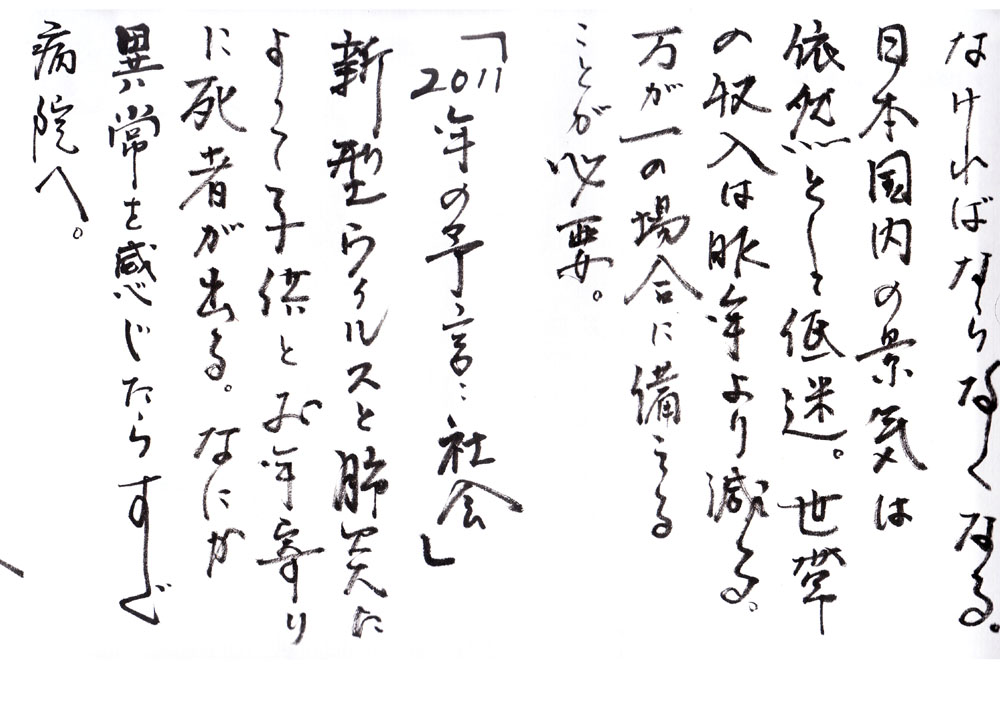 なければならなくなる。
日本国内の景気は
依然として低迷。世帯
の収入は昨年より減る。
万が一の場合に備える
ことが必要。
「2011年の予言：社会」
新型ウィルスと肺炎に
よって子供とお年寄り
に死者が出る。なにか
異常を感じたらすぐ
病院へ。